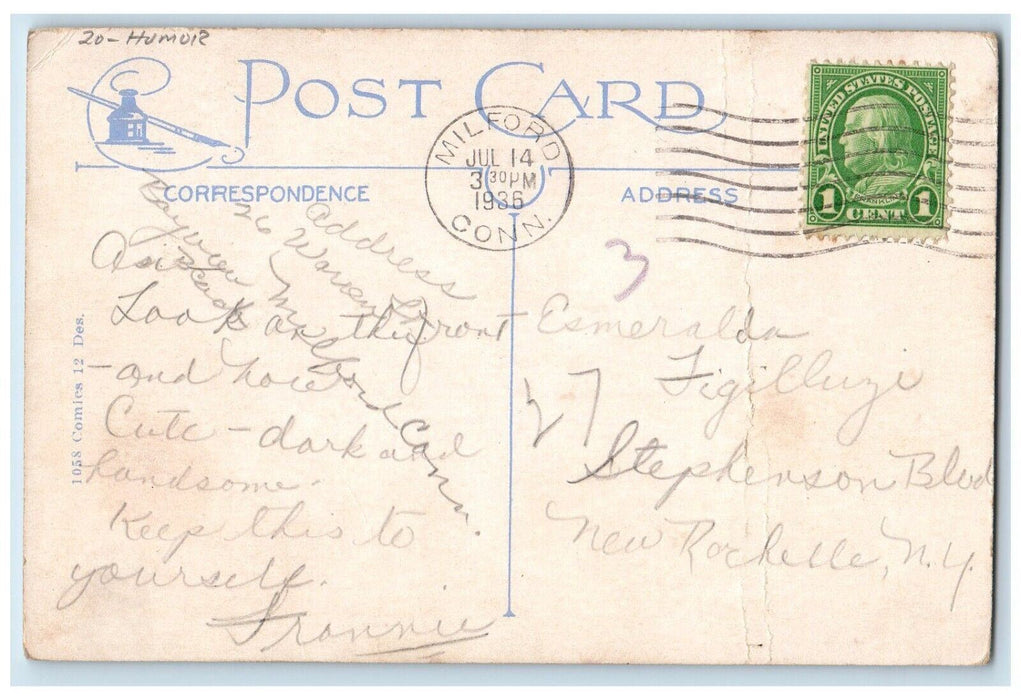 20-HUMOIR
POST CARD
MILFORD
JUL 14
3 30 PM
1936
CONN.
UNITED STATES POSTAGE
FRANKLIN
1 CENT 1
CORRESPONDENCE
ADDRESS
3
Address
26 Warren
Bayview
Beach
Milford Conn.
Look on the front
- and how
Cute - dark and
handsome -
Keep this to
yourself.
Frannie
1058 Comics 12 Des.
Esmeralda
Figilluzi
27
Stephenson Blvd
New Rochelle, N.Y.